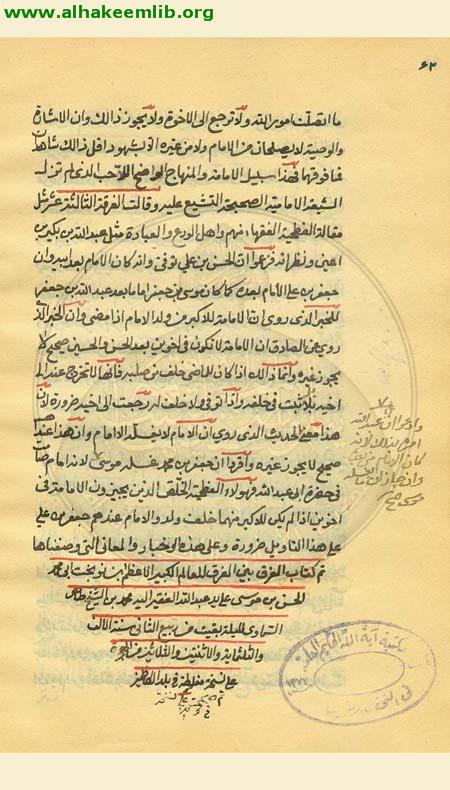 www.alhakeemlib.org
٦٢
ما اتصلت امور الله ولا ترجع الى الاخوة ولا يجوز ذالك وان الاشارة
والوصية لا يصلحان من الامام ولا من غيره الا بشهود اقل ذالك شاهدان
فما فوقهما فهذا سبيل الامامة والمنهاج الواضح اللاحب الذى لم تزل
الشيعة الامامية الصحيحة التشيع عليه وقالت الفرقة الثالثة عشر مثل
مقالة الفطحية الفقهاء منهم واهل الورع والعبادة مثل عبد الله بن بكير بن
اعين ونظرائه فزعموا ان الحسن بن على توفى وانه كان الامام بعد ابيه وان
جعفر بن على الامام بعده كما كان موسى بن جعفر اماما بعد عبد الله بن جعفر
للخبر الذى روى ان الامامة للاكبر من ولد الامام اذا مضى وان الخبر الذى
روى عن الصادق ان الامامة لا تكون فى اخوين بعد الحسن والحسين صحيح لا
يجوز غيره وانما ذالك اذا كان للماضى خلف من صلبه فانها لا تخرج منه الى
اخيه بل تثبت فى خلفه واذا توفى ولا خلف له رجعت الى اخيه ضرورة لان
هذا معنى الحديث الذى روى ان الامام لا يغسله الا امام وان هذا عندهم
صحيح لا يجوز غيره واقروا ان جعفر بن محمد غسله موسى لانه امام صامت
فى حضرة ابى عبد الله فهؤلاء الفطحية الخلص الذين يجيزون الامامة فى
اخوين اذا لم يكن للاكبر منهما خلف ولد والامام عندهم جعفر بن على
على هذا التاويل ضرورة وعلى هذه الاخبار والمعانى التى وصفناها
تم كتاب الفرق بين الفرق للعالم الكبير الاعظم ابن نوبخت ابى محمد
الحسن بن موسى على يد عبد الله الفقير السيد محمد بن الشيخ طاهر
السماوى لليلة بقيت من ربيع الثانى سنة الالف
والثلثماية والاثنتين والثلاثين من الهجرة
على نسخة مغلطة فى بلد الكاظمين
وادعوا ان عبد الله